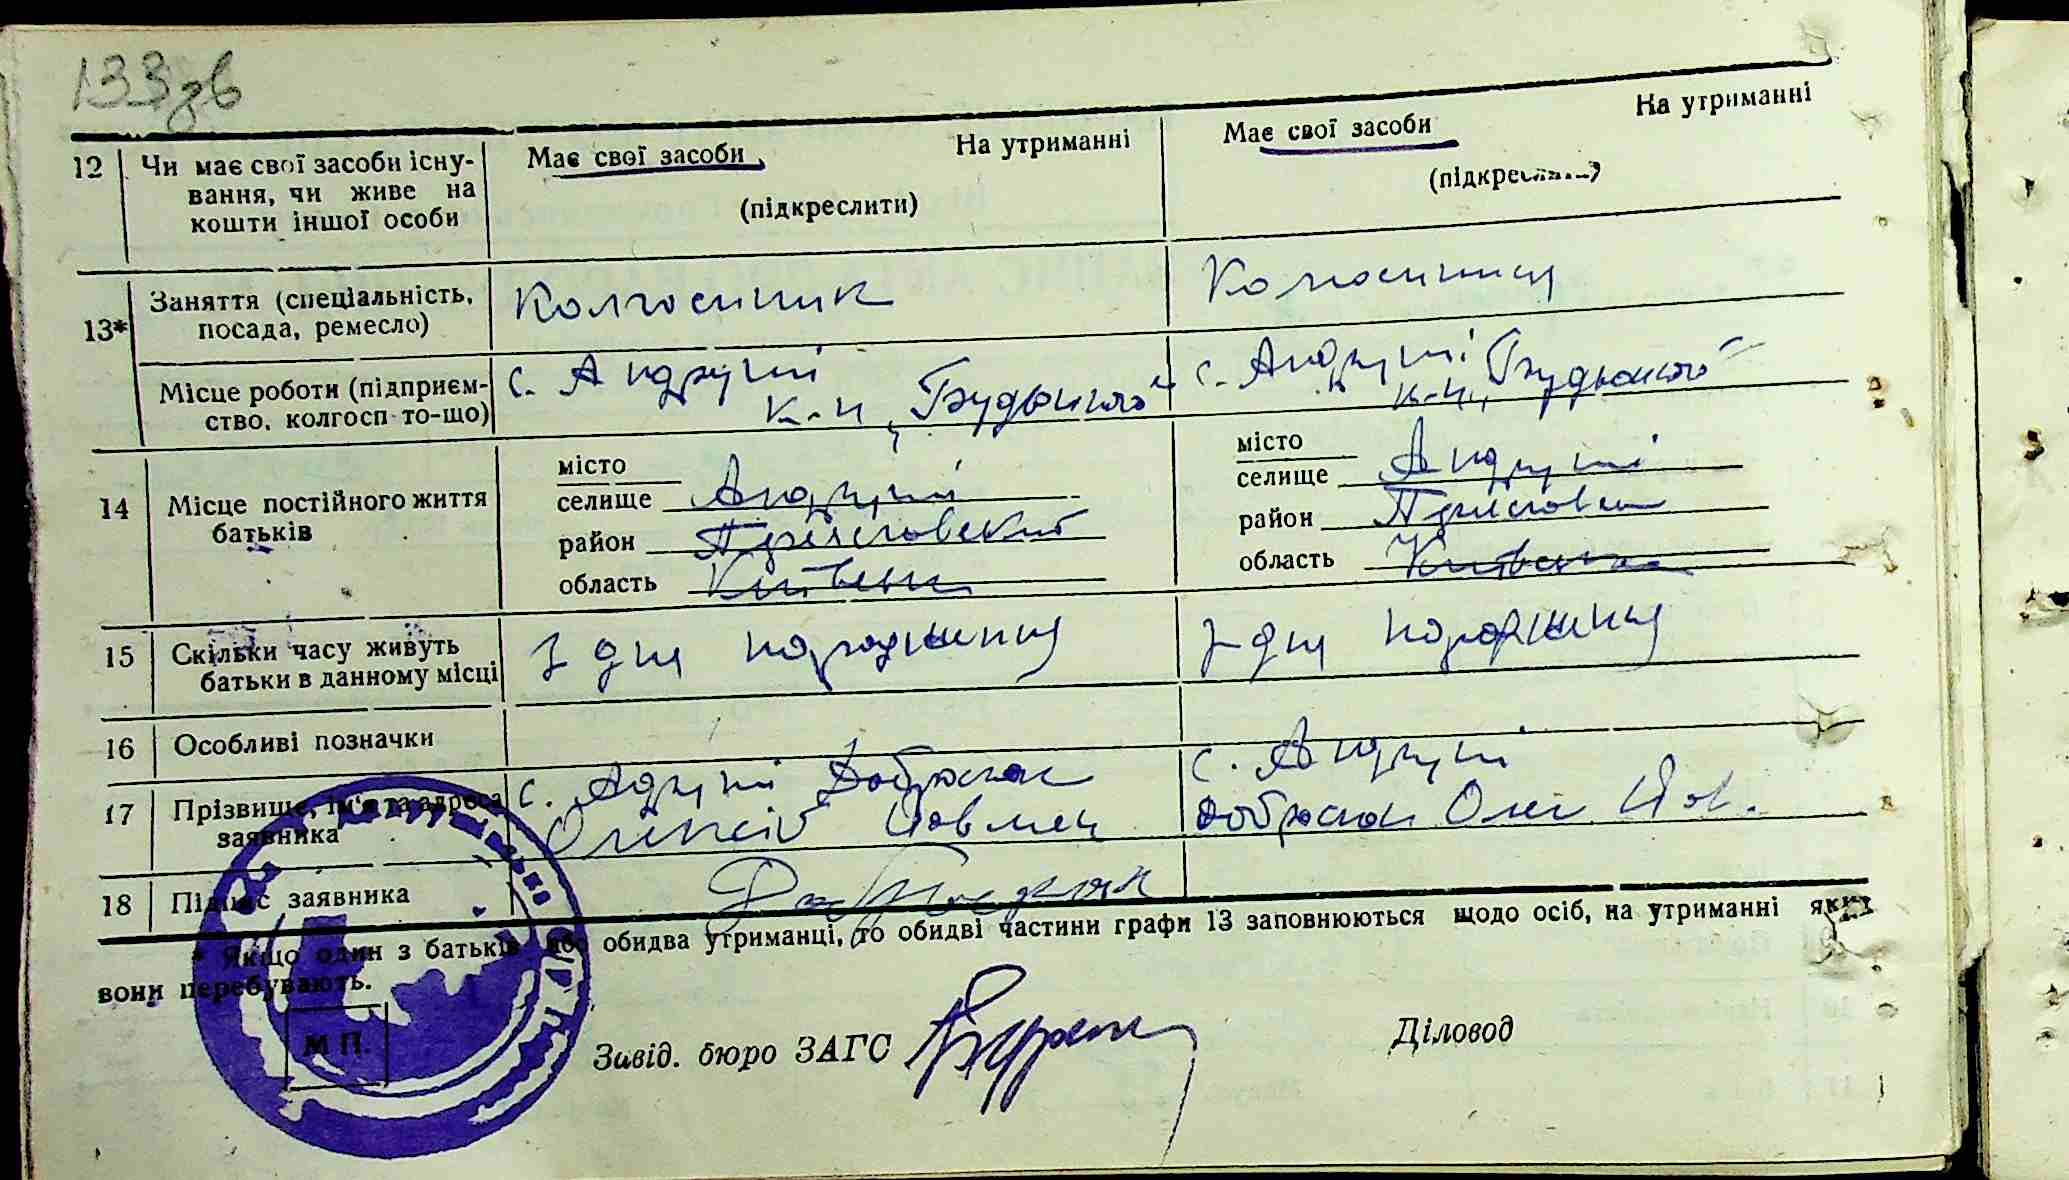 133зв
12 Чи має свої засоби існу-
вання, чи живе на
кошти іншої особи
Має свої засоби На утриманні
(підкреслити)
Має свої засоби На утриманні
(підкреслити)
13* Заняття (спеціальність,
посада, ремесло)
Колгоспник
Колгоспниця
Місце роботи (підприєм-
ство, колгосп то-що)
с. Андруші
к-п „Будьоного“
с. Андруші
к-п „Будьоного“
14 Місце постійного життя
батьків
місто
селище Андруші
район Переяславский
область Київська
місто
селище Андруші
район
область Київська
15 Скільки часу живуть
батьки в данному місці
З дня народження
З дня народження
16 Особливі позначки
17 Прізвище, ім'я та адреса
заявника
с. Андруші
Олексій
с. Андруші
18 Підпис заявника
* Якщо один з батьків або обидва утриманці, то обидві частини графи 13 заповнюються щодо осіб, на утриманні яких
вони перебувають.
М П.
Завід. бюро ЗАГС
Діловод